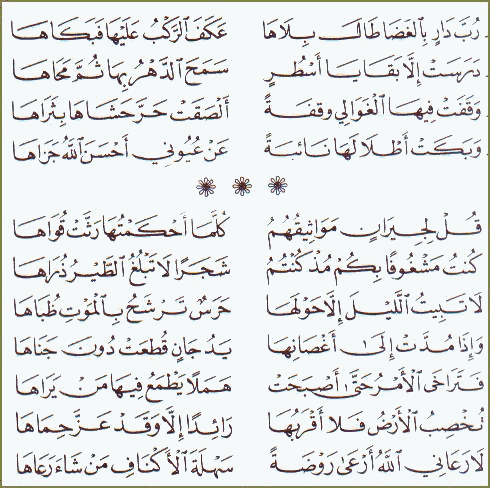 رُبَّ دَارٍ بِالْغَضَا طَالَ بِلَاهَا عَكَفَ الرَّكْبُ عَلَيْهَا فَبَكَاهَا
دَرَسَتْ إِلَّا بَقَايَا أَسْطُرٍ سَمَحَ الدَّهْرُ بِهَا ثُمَّ مَحَاهَا
وَقَفَتْ فِيهَا الْغَوَالِي وَقْفَةً أَلْصَقَتْ حَرَّ حَشَاهَا بِثَرَاهَا
وَبَكَتْ أَطْلَالَهَا نَائِبَةً عَنْ عُيُونِي أَحْسَنَ اللهُ جَزَاهَا
قُلْ لِجِيرَانٍ مَوَاثِيقُهُمُ كُلَّمَا أَحْكَمْتُهَا رَثَّتْ قُوَاهَا
كُنْتُ مَشْغُوفًا بِكُمْ مُذْ كُنْتُمُ شَجَرًا لَا تَبْلُغُ الطَّيْرُ ذُرَاهَا
لَا تَبِيتُ اللَّيْلَ إِلَّا حَوْلَهَا حَرَسٌ تَرْشَحُ بِالْمَوْتِ ظُبَاهَا
وَإِذَا مُدَّتْ إِلَى أَغْصَانِهَا يَدُ جَانٍ قُطِعَتْ دُونَ جَنَاهَا
فَتَرَاخَى الْأَمْرُ حَتَّى أَصْبَحَتْ هَمَلًا يَطْمَعُ فِيهَا مَنْ يَرَاهَا
تُخْصِبُ الْأَرْضُ فَلَا أَقْرَبُهَا رَائِدًا إِلَّا وَقَدْ عَزَّ حِمَاهَا
لَا رَعَانِي اللهُ أَرْعَى رَوْضَةً سَهْلَةَ الْأَكْنَافِ مَنْ شَاءَ رَعَاهَا